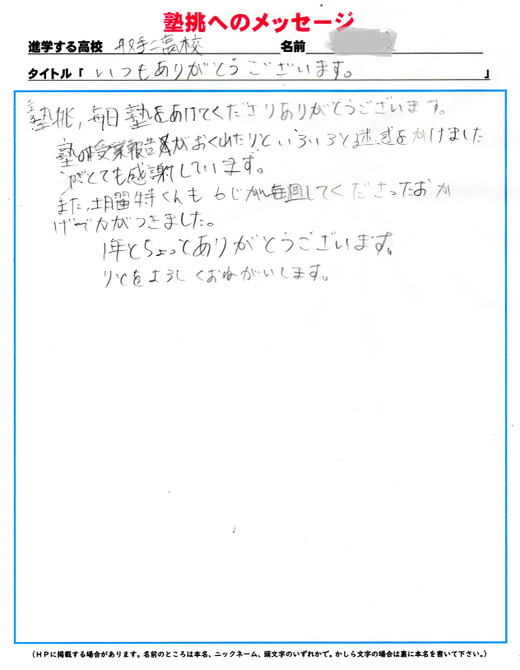 塾挑へのメッセージ
進学する高校 取手二高校 名前
タイトル「いつもありがとうございます。」
塾挑,毎日塾をあけてくださりありがとうございます。
塾の授業報告がおくれたりといろいろと迷惑をかけました
がとても感謝しています。
また,土曜特くんも6じかん毎週してくださったおか
げで力がつきました。
1年とちょっとありがとうございます。
りとをよろしくおねがいします。
(HPに掲載する場合があります。名前のところは本名、ニックネーム、頭文字のいずれかで。かしら文字の場合は裏に本名を書いて下さい。)